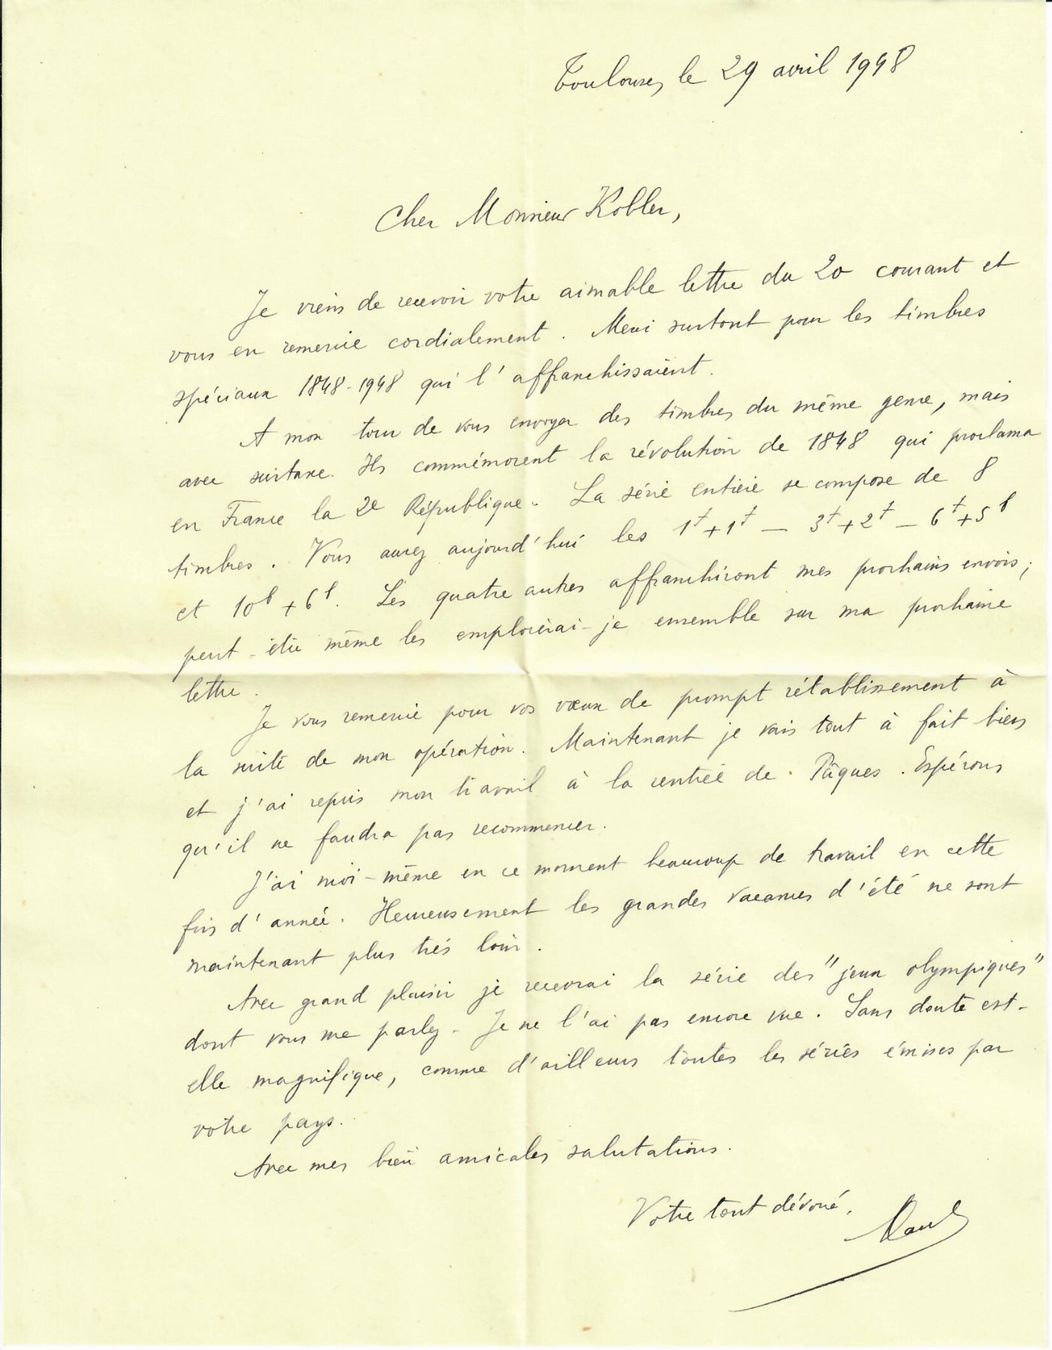 Toulouse, le 29 avril 1948
Cher Monsieur Kobler,
Je viens de recevoir votre aimable lettre du 20 courant et
vous en remercie cordialement. Merci surtout pour les timbres
spéciaux 1848-1948 qui l'affranchissaient.
A mon tour de vous envoyer des timbres du même genre, mais
avec surtaxe. Ils commémorent la révolution de 1848 qui proclama
en France la 2e République. La série entière se compose de 8
timbres. Vous aurez aujourd'hui les 1f+1f — 3f+2f — 6f+5f
et 10f+6f. Les quatre autres affranchiront mes prochains envois;
peut-être même les emploierai-je ensemble sur ma prochaine
lettre.
Je vous remercie pour vos vœux de prompt rétablissement à
la suite de mon opération. Maintenant je vais tout à fait bien
et j'ai repris mon travail à la rentrée de Pâques. Espérons
qu'il ne faudra pas recommencer.
J'ai moi-même en ce moment beaucoup de travail en cette
fin d'année. Heureusement les grandes vacances d'été ne sont
maintenant plus très loin.
Avec grand plaisir je recevrai la série des "jeux olympiques"
dont vous me parlez. Je ne l'ai pas encore vue. Sans doute est-
elle magnifique, comme d'ailleurs toutes les séries émises par
votre pays.
Avec mes bien amicales salutations.
Votre tout dévoué,